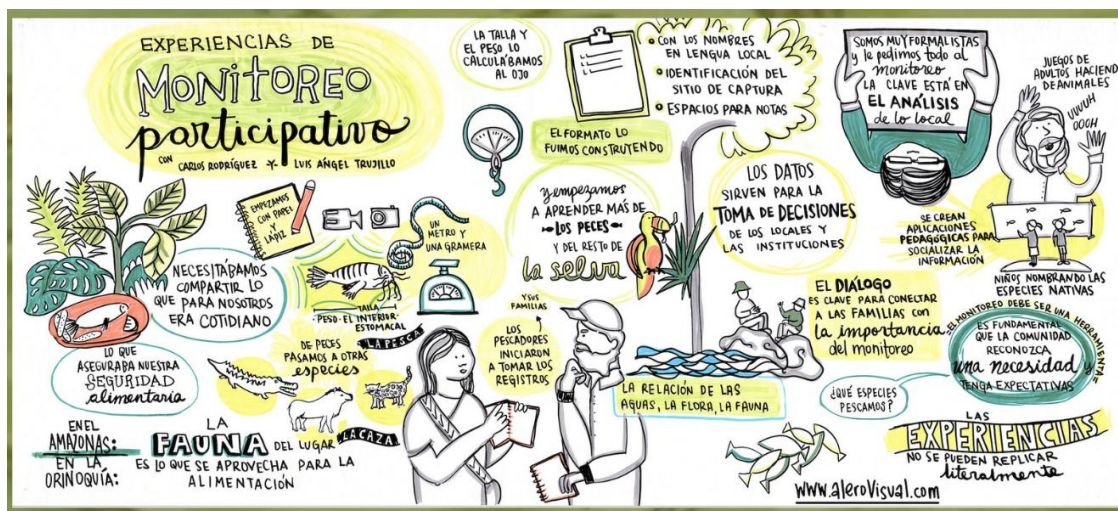 EXPERIENCIAS DE
MONITOREO
participativo
CON CARLOS RODRÍGUEZ Y LUIS ÁNGEL TRUJILLO
EMPEZAMOS
CON PAPEL
Y
LÁPIZ
UN
METRO Y
UNA GRAMERA
NECESITÁBAMOS
COMPARTIR LO
QUE PARA NOSOTROS
ERA COTIDIANO
TALLA
PESO · EL INTERIOR
ESTOMACAL
LA PESCA
LO QUE
ASEGURABA NUESTRA
SEGURIDAD
alimentaria
DE PECES
PASAMOS A OTRAS
especies
LA CAZA
EN EL
AMAZONAS:
EN LA
ORINOQUÍA:
LA
FAUNA DEL LUGAR
ES LO QUE SE APROVECHA PARA LA
ALIMENTACIÓN
LA TALLA Y
EL PESO LO
CALCULÁBAMOS
AL OJO
CON LOS NOMBRES
EN LENGUA LOCAL
IDENTIFICACIÓN DEL
SITIO DE CAPTURA
ESPACIOS PARA NOTAS
EL FORMATO LO
FUIMOS CONSTRUYENDO
y empezamos
A APRENDER MÁS DE
LOS PECES
Y DEL RESTO DE
la selva
Y SUS
FAMILIAS
LOS
PESCADORES
INICIARON
A TOMAR LOS
REGISTROS
LOS DATOS
SIRVEN PARA LA
TOMA DE DECISIONES
DE LOS LOCALES Y
LAS INSTITUCIONES
EL DIÁLOGO
ES CLAVE PARA CONECTAR
A LAS FAMILIAS CON
la importancia
del monitoreo
LA RELACIÓN DE LAS
AGUAS, LA FLORA, LA FAUNA
SOMOS MUY FORMALISTAS
y le pedimos todo al
monitoreo
LA CLAVE ESTÁ EN
EL ANÁLISIS
de lo local
JUEGOS DE
ADULTOS HACIENDO
DE ANIMALES
UUUH
OOOH
SE CREAN
APLICACIONES
PEDAGÓGICAS PARA
SOCIALIZAR LA
INFORMACIÓN
NIÑOS NOMBRANDO LAS
ESPECIES NATIVAS
EL MONITOREO DEBE SER UNA HERRAMIENTA
ES FUNDAMENTAL
QUE LA COMUNIDAD
RECONOZCA
una necesidad y
TENGA EXPECTATIVAS
¿QUÉ ESPECIES
PESCAMOS?
LAS
EXPERIENCIAS
NO SE PUEDEN REPLICAR
literalmente
www.aleroVisual.com